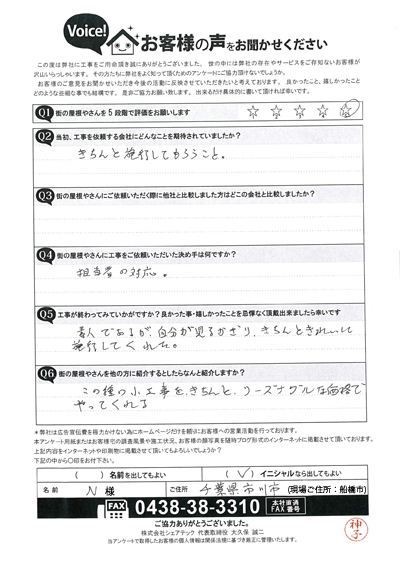 Voice!
お客様の声をお聞かせください
この度は弊社に工事をご用命頂き誠にありがとうございました。 世の中には弊社の存在やサービスをご存知ないお客様が
沢山いらっしゃいます。 その方たちに弊社をよく知って頂くためのアンケートにご協力頂けないでしょうか。
お客様のご意見をお聞かせいただき今後の活動に反映させていただきたいと考えております。 良かったこと、嬉しかったこと
どのような些細な事でも結構です。 是非ご協力お願い致します。 出来るだけ具体的に書いて頂ければ幸いです。
Q1 街の屋根やさんを5段階で評価をお願いします
☆ ☆ ☆ ☆ ☆
Q2 当初、工事を依頼する会社にどんなことを期待されていましたか?
きちんと施行してもらうこと。
Q3 街の屋根やさんにご依頼いただく際に他社と比較しました方はどこの会社と比較しましたか?
Q4 街の屋根やさんに工事をご依頼いただいた決め手は何ですか?
担当者の対応。
Q5 工事が終わってみていかがですか?良かった事・嬉しかったことを忌憚なく頂戴出来ましたら幸いです
素人であるが、自分が見るかぎり、きちんときれいに
施行してくれた。
Q6 街の屋根やさんを他の方に紹介するとしたらなんと紹介しますか?
この種の小工事をきちんと、リーズナブルな価格で
やってくれる
*弊社は広告宣伝費を掛けないためにホームページだけを頼りにお客様への営業活動を行っております。
本アンケート用紙またはお客様宅の調査風景や施工状況、お客様の顔写真を随時ブログ形式のインターネットに掲載させて頂いております。
上記内容をインターネットや印刷物に掲載させて頂いてもよろしいでしょうか?
下記の中から〇印をお付け下さい。
( ) 名前を出してもよい
(✓) イニシャルなら出してもよい
名前 N 様
ご住所 千葉県市川市 (現場ご住所:船橋市)
FAX 0438-38-3310 本社直通FAX番号
ご協力ありがとうございました。
株式会社シェアテック 代表取締役 大久保 誠二
当アンケートで取得したお客様の個人情報は関係法規に基づき厳正に管理いたします。
神子